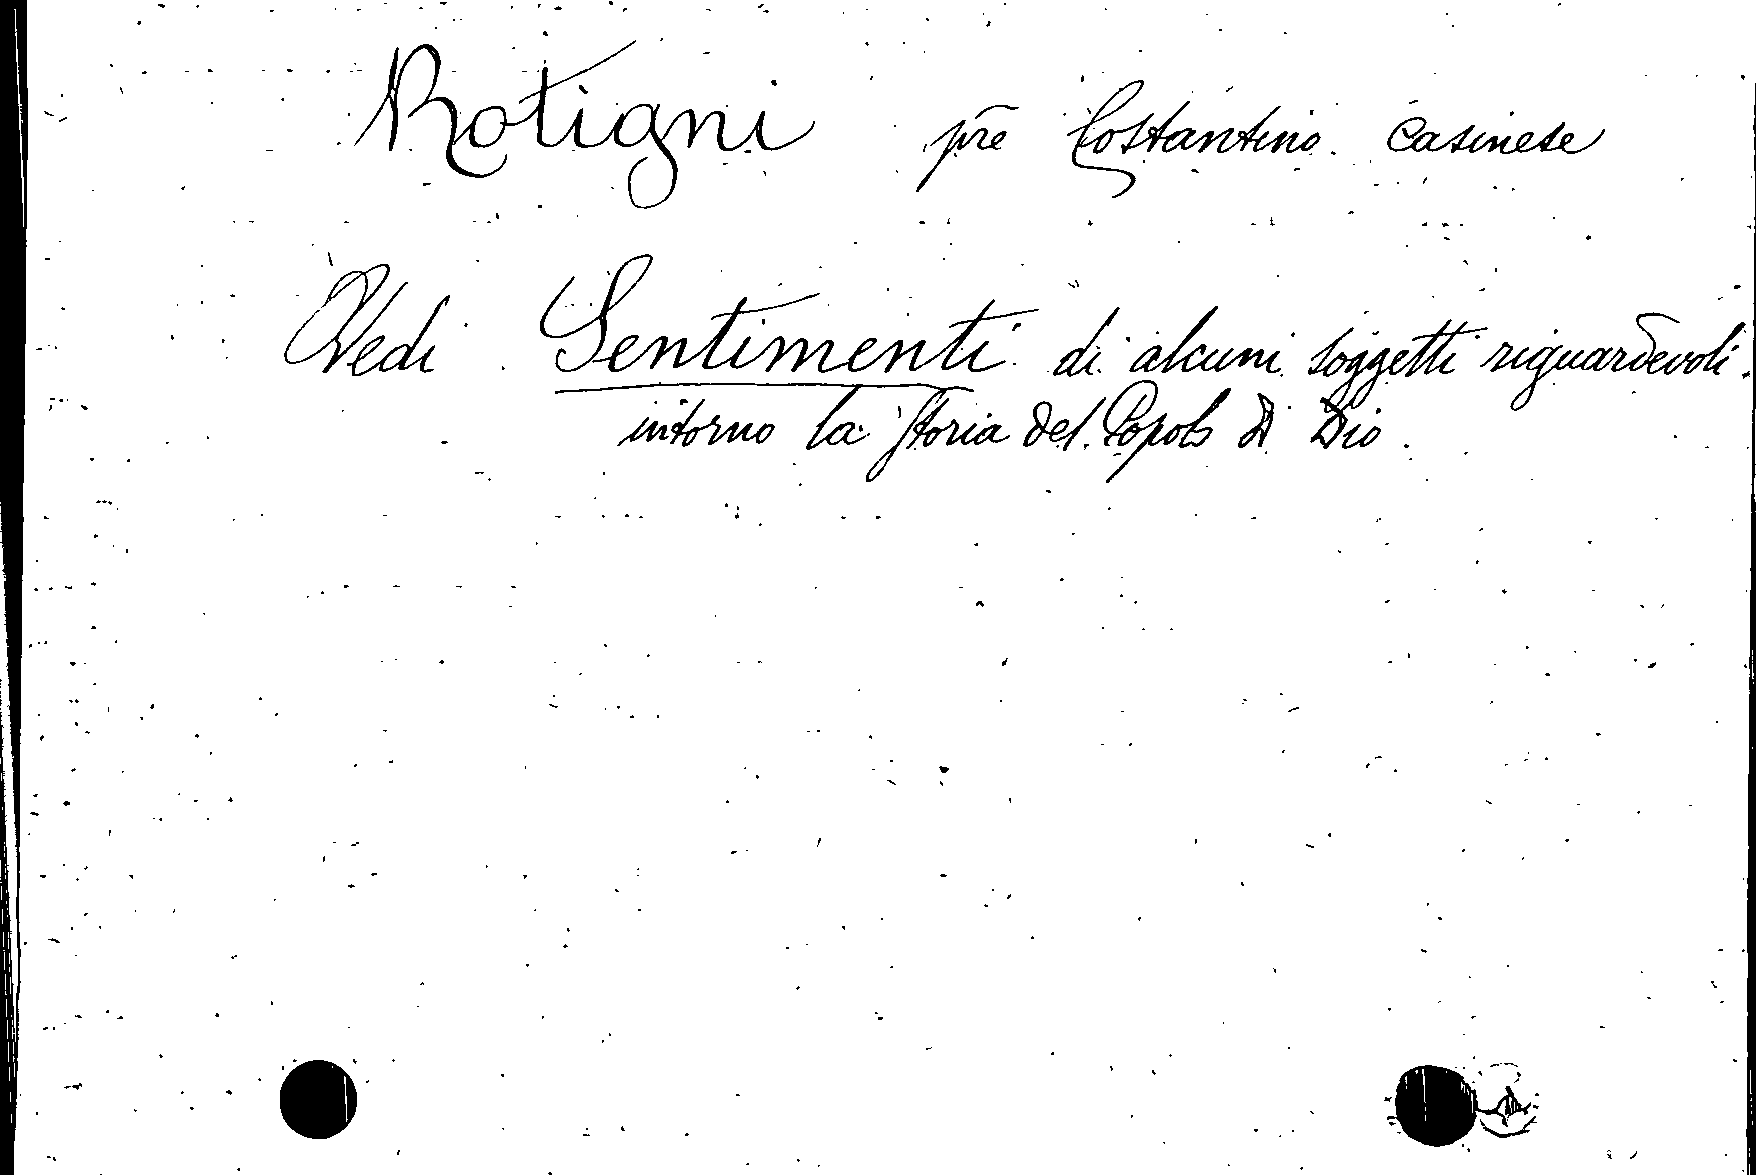 Rotigni p̄re Costantino Casinese
Vedi Sentimenti di alcuni soggetti riguardevoli
intorno la Storia del Popolo di Dio.